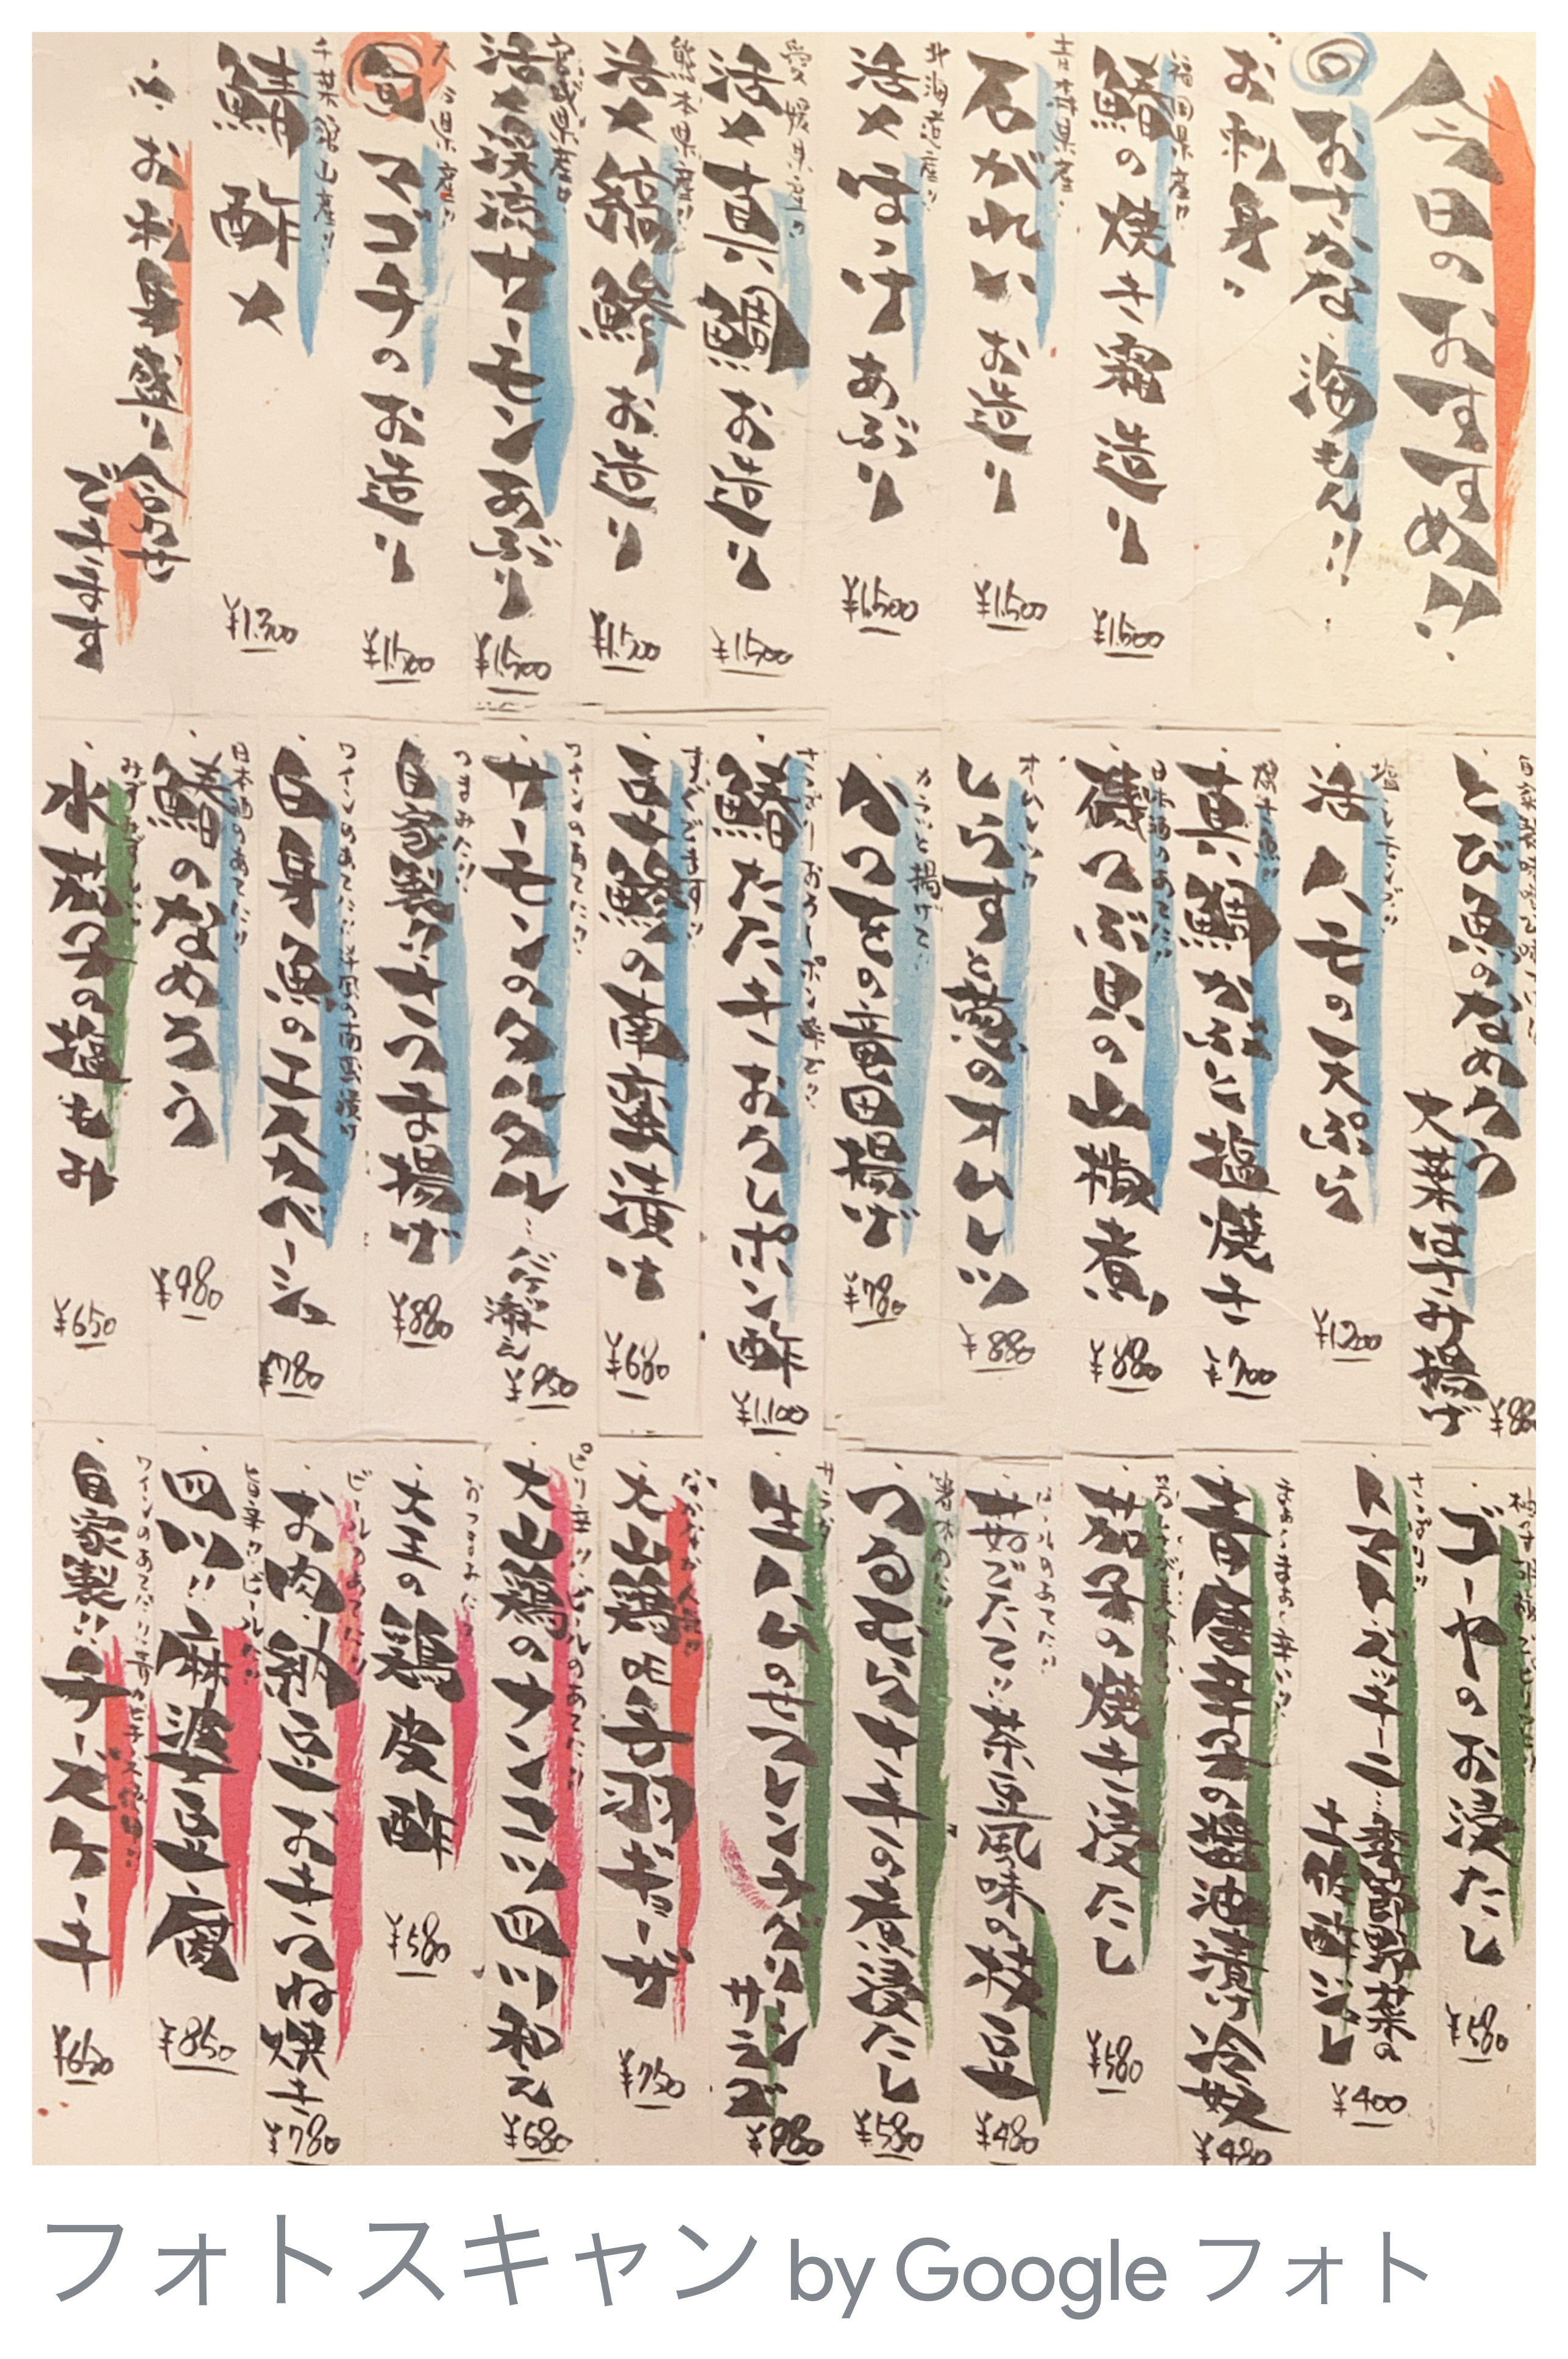 今日のおすすめ!!
◎おさかな・海もん!!
お刺身
福岡県産
鰆の焼き霜造り
¥1,500
青森県産
石がれいお造り
¥1,500
北海道産
活〆ほっけあぶり
¥1,500
愛媛県産
活〆真鯛お造り
¥1,500
熊本県産
活〆縞鯵お造り
¥1,500
宮崎県産
活〆渓流サーモンあぶり
¥1,500
県産
マゴチのお造り
¥1,500
千葉館山産
鯖酢〆
¥1,300
お刺身盛り合わせ
できます
とび魚のなめろう
大葉はさみ揚げ
¥880
塩レモンで
活ハモの天ぷら
¥1200
焼き魚
真鯛かぶと塩焼き
¥700
日本酒のあてに
磯つぶ貝の山椒煮
¥880
しらすと葱のオムレツ
¥880
カラッと揚げて
かつおの竜田揚げ
¥780
さっぱりおろしポン酢で
鰆たたきおろしポン酢
¥1,100
すぐでます
豆鯵の南蛮漬け
¥680
ワインのあてに
サーモンのタルタル…バゲット添え
¥950
つまみに
自家製さつま揚げ
¥880
ワインのあてに洋風の南蛮漬け
白身魚のエスカベーシュ
¥780
日本酒のあてに
鯵のなめろう
¥980
みずみずしい
水茄子の塩もみ
¥650
ゴーヤのお浸たし
¥580
さっぱり
香味野菜の土佐酢ジュレ
¥400
青唐辛子の醤油漬け冷奴
¥480
茄子の焼き浸たし
¥580
ビールのあてに
茹でたて!!茶豆風味の枝豆
¥480
箸休めに
つるむらさきの煮浸たし
¥580
サラダ
サラダ
¥980
大山鶏の手羽ギョーザ
¥750
ピリ辛!ビールのあてに
大山鶏のナンコツ四川和え
¥680
おつまみに
大王の鶏皮酢
¥580
ビールのあてに
お肉・納豆・おきつね焼き
¥780
旨辛でビール
四川!!麻婆豆腐
¥850
ワインのあてに
自家製!!チーズケーキ
¥650
フォトスキャン by Google フォト